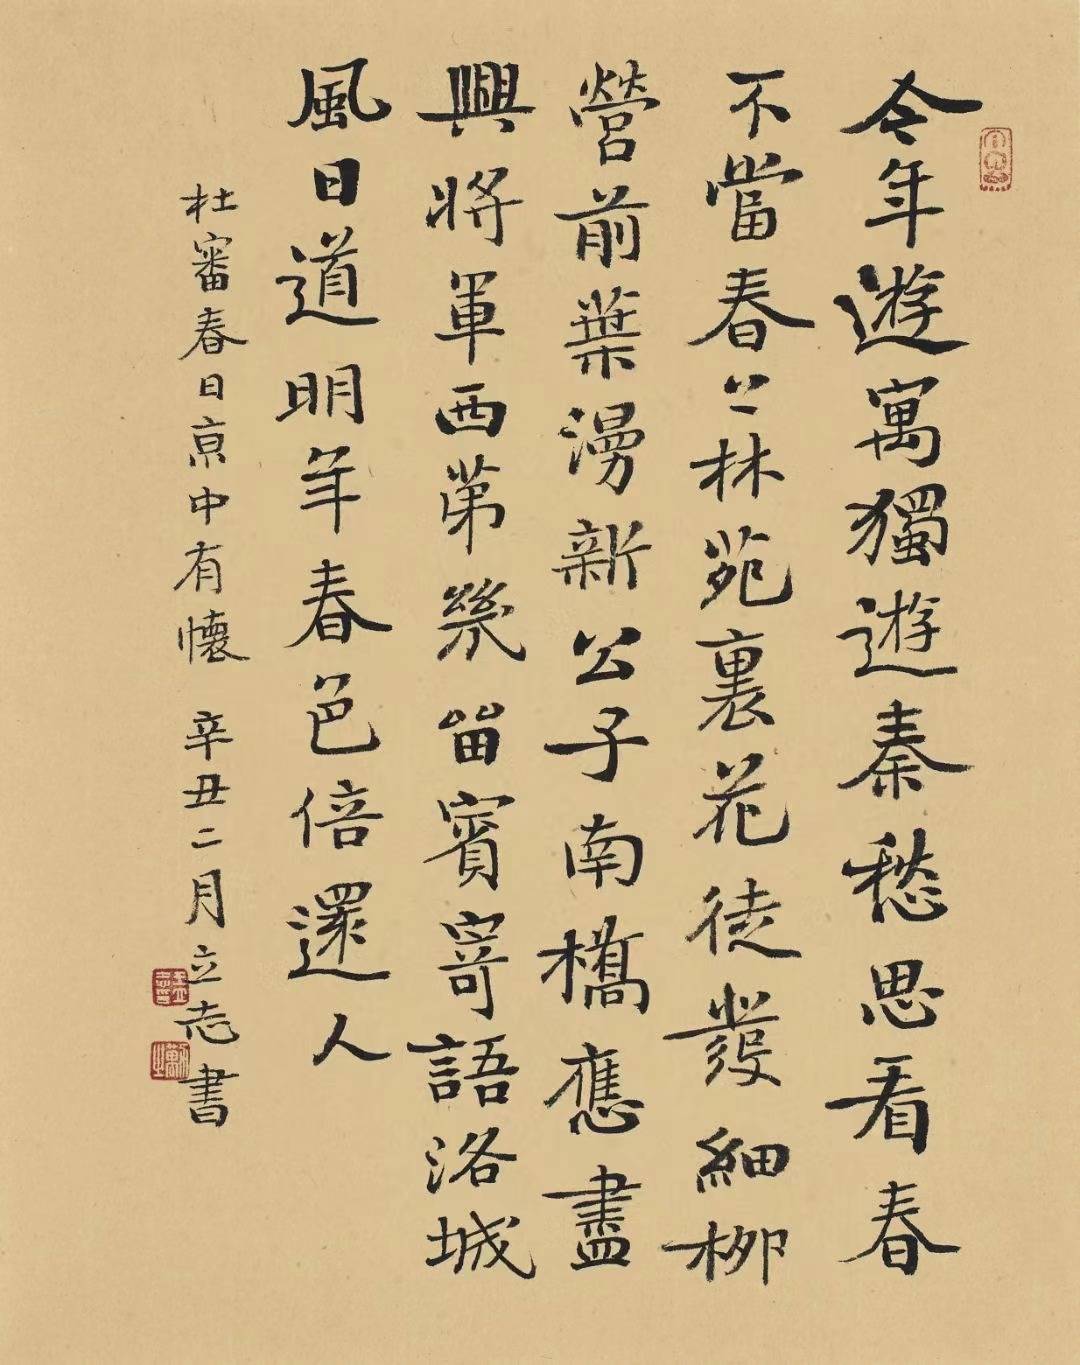 今年遊寓獨遊秦愁思看春
不當春上林苑裏花徒發細柳
營前葉漫新公子南橋應盡
興將軍西第幾留賓寄語洛城
風日道明年春色倍還人
杜審春日京中有懷 辛丑二月立志書